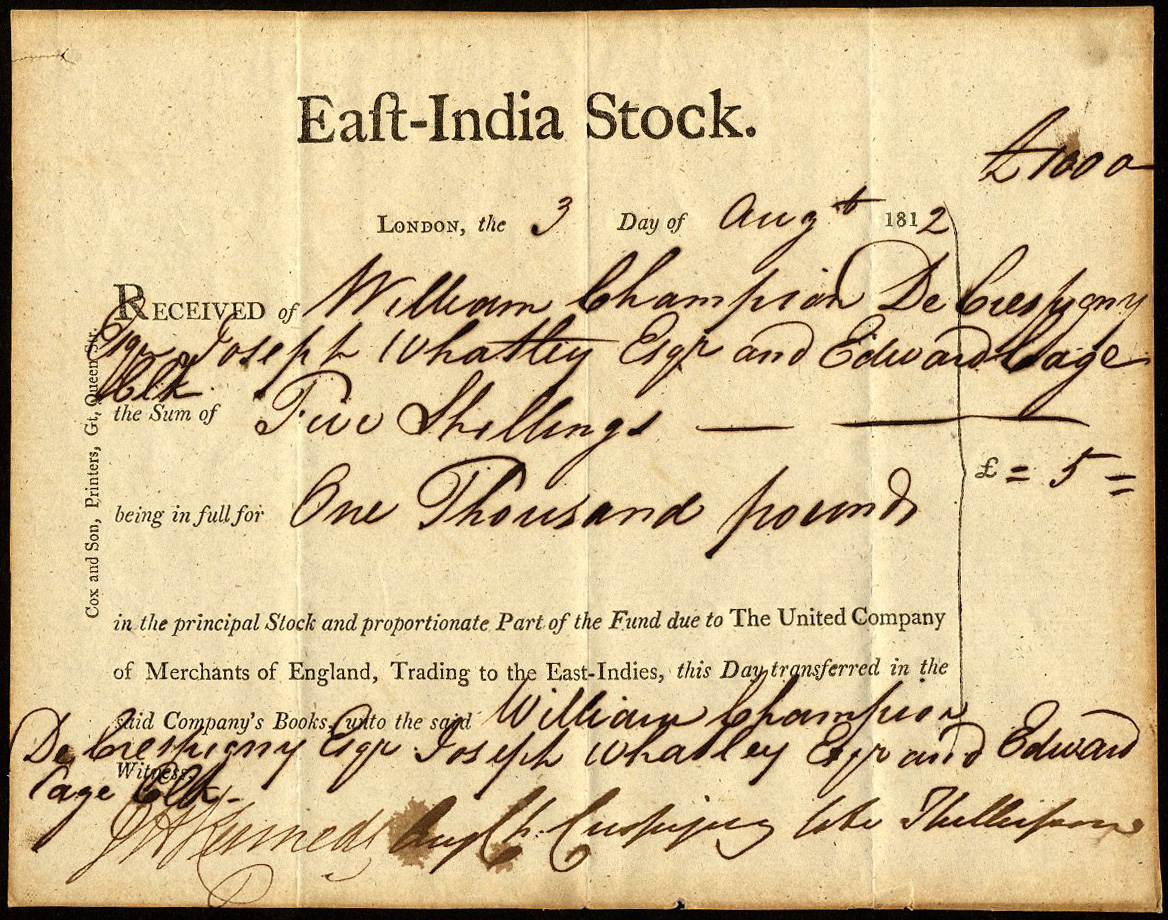 Eaſt-India Stock.
£1000
LONDON, the 3 Day of Augt 1812
RECEIVED of William Champion De Crespigny
Esqr Joseph Whatley Esqr and Edward Cage
Clk
the Sum of Five Shillings
£ = 5 =
being in full for One Thousand pounds
in the principal Stock and proportionate Part of the Fund due to The United Company
of Merchants of England, Trading to the East-Indies, this Day transferred in the
said Company's Books, unto the said William Champion
De Crespigny Esqr Joseph Whatley Esqr and Edward
Witness,
Cage Clk.
Cox and Son, Printers, Gt. Queen Str.